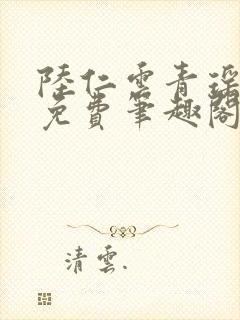 陸仁雲青瑶
免費筆趣閣
清雲.